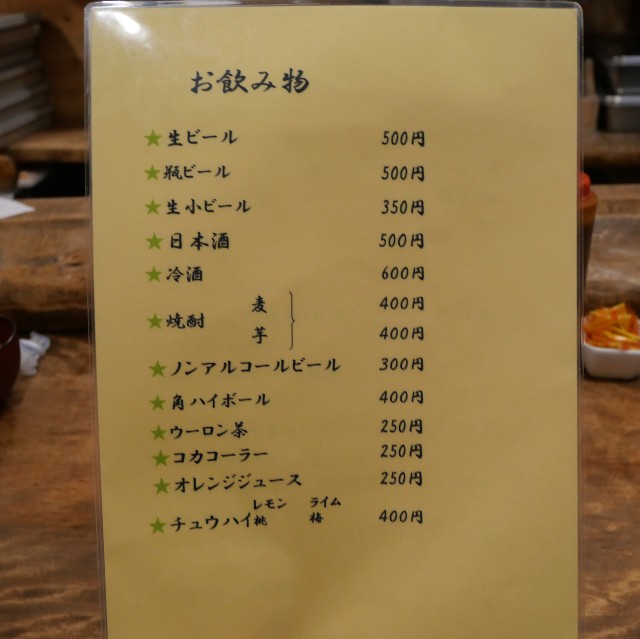 お飲み物
★生ビール 500円
★瓶ビール 500円
★生小ビール 350円
★日本酒 500円
★冷酒 600円
★焼酎 麦 400円
芋 400円
★ノンアルコールビール 300円
★角ハイボール 400円
★ウーロン茶 250円
★コカコーラー 250円
★オレンジジュース 250円
レモン ライム
★チュウハイ 桃 梅 400円